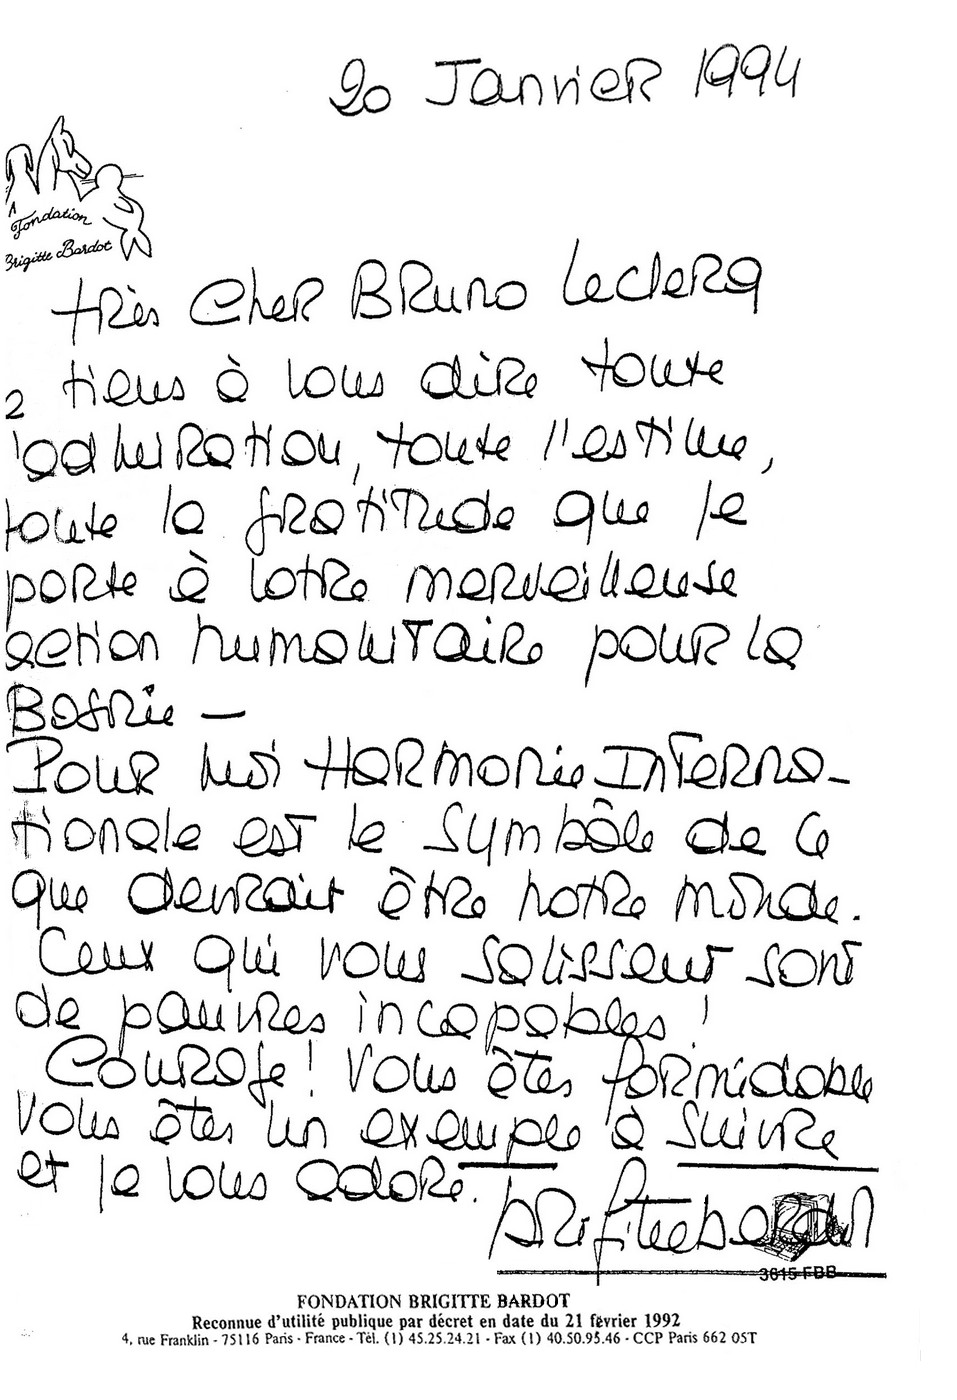 20 Janvier 1994
Fondation
Brigitte Bardot
très Cher Bruno Leclerq
tiens à vous dire toute
l'admiration, toute l'estime,
toute la gratitude que je
porte à votre merveilleuse
action humanitaire pour la
Bosnie —
Pour moi Harmonie Interna-
tionale est le symbôle de ce
que devrait être notre monde.
Ceux qui vous salissent sont
de pauvres incapables !
Courage ! Vous êtes formidable
Vous êtes un exemple à suivre
et je vous adore.
Brigitte Bardot
3615 FBB
FONDATION BRIGITTE BARDOT
Reconnue d'utilité publique par décret en date du 21 février 1992
4, rue Franklin - 75116 Paris - France - Tél. (1) 45.25.24.21 - Fax (1) 40.50.95.46 - CCP Paris 662 05T